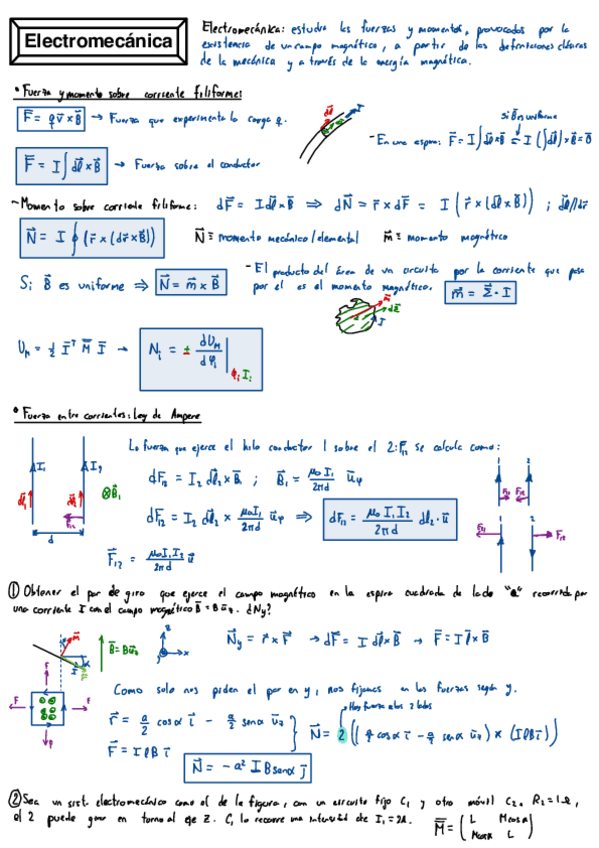 Electromecánica
Electromecánica: estudia las fuerzas y momentos, provocados por la
existencia de un campo magnético, a partir de las definiciones clásicas
de la mecánica y a través de la energía magnética.
• Fuerza y momento sobre corriente filiforme:
F⃗ = q v⃗ × B⃗ → Fuerza que experimenta la carga q.
dl⃗ I
Si B es uniforme
- En una espira: F⃗ = I ∫ dl⃗ × B⃗ = I (∫ dl⃗) × B⃗ = 0
F⃗ = I ∫ dl⃗ × B⃗ → Fuerza sobre el conductor
- Momento sobre corriente filiforme: dF⃗ = I dl⃗ × B⃗ ⇒ dN⃗ = r⃗ × dF⃗ = I (r⃗ × (dl⃗ × B⃗)) ; dl⃗ // dr⃗
N⃗ = I ∮ (r⃗ × (dr⃗ × B⃗)) N⃗ ≡ momento mecánico/elemental m⃗ ≡ momento magnético
Si B⃗ es uniforme ⇒ N⃗ = m⃗ × B⃗
- El producto del área de un circuito por la corriente que pasa
por él es el momento magnético. m⃗ = Σ⃗ · I
m⃗ dΣ⃗ I
U_M = ½ I⃗ᵀ M̿ I⃗ → N_i = ± dU_M / dφ_i | φ_i I_i
• Fuerza entre corrientes: Ley de Ampere
La fuerza que ejerce el hilo conductor 1 sobre el 2: F₁₂ se calcula como:
I₁ I₂ dl⃗₁ dl⃗₂ ⊗ B⃗₁ F₁₂ d
dF⃗₁₂ = I₂ dl⃗₂ × B⃗₁ ; B⃗₁ = μ₀ I₁ / 2πd u⃗φ
dF⃗₁₂ = I₂ dl⃗₂ × μ₀ I₁ / 2πd u⃗φ ⇒ dF⃗₁₂ = μ₀ I₁ I₂ / 2πd dl₂ · u⃗
F⃗₁₂ = μ₀ I₁ I₂ / 2πd u⃗
1 2 F₂₁ F₁₂
1 2 F₂₁ F₁₂
① Obtener el par de giro que ejerce el campo magnético en la espira cuadrada de lado "a" recorrida por
una corriente I con el campo magnético B⃗ = B u⃗z. ¿Ny?
m⃗ B⃗ = B u⃗z z x y
N⃗y = r⃗ × F⃗ → dF⃗ = I dl⃗ × B⃗ → F⃗ = I l⃗ × B⃗
Como solo nos piden el par en y, nos fijamos en las fuerzas según y.
F F F F
Hay fuerza a los 2 lados
r⃗ = a/2 cosα i⃗ − a/2 senα u⃗z
F⃗ = I l B i⃗
N⃗ = 2 ((a/2 cosα i⃗ − a/2 senα u⃗z) × (I l B i⃗))
N⃗ = − a² I B senα j⃗
② Sea un sist. electromecánico como el de la figura, con un circuito fijo C₁ y otro móvil C₂. R₂ = 1Ω,
el 2 puede girar en torno al eje Z. C₁ lo recorre una intensidad de I₁ = 2A. M̿ = (L Mcosα
Mcosα L)